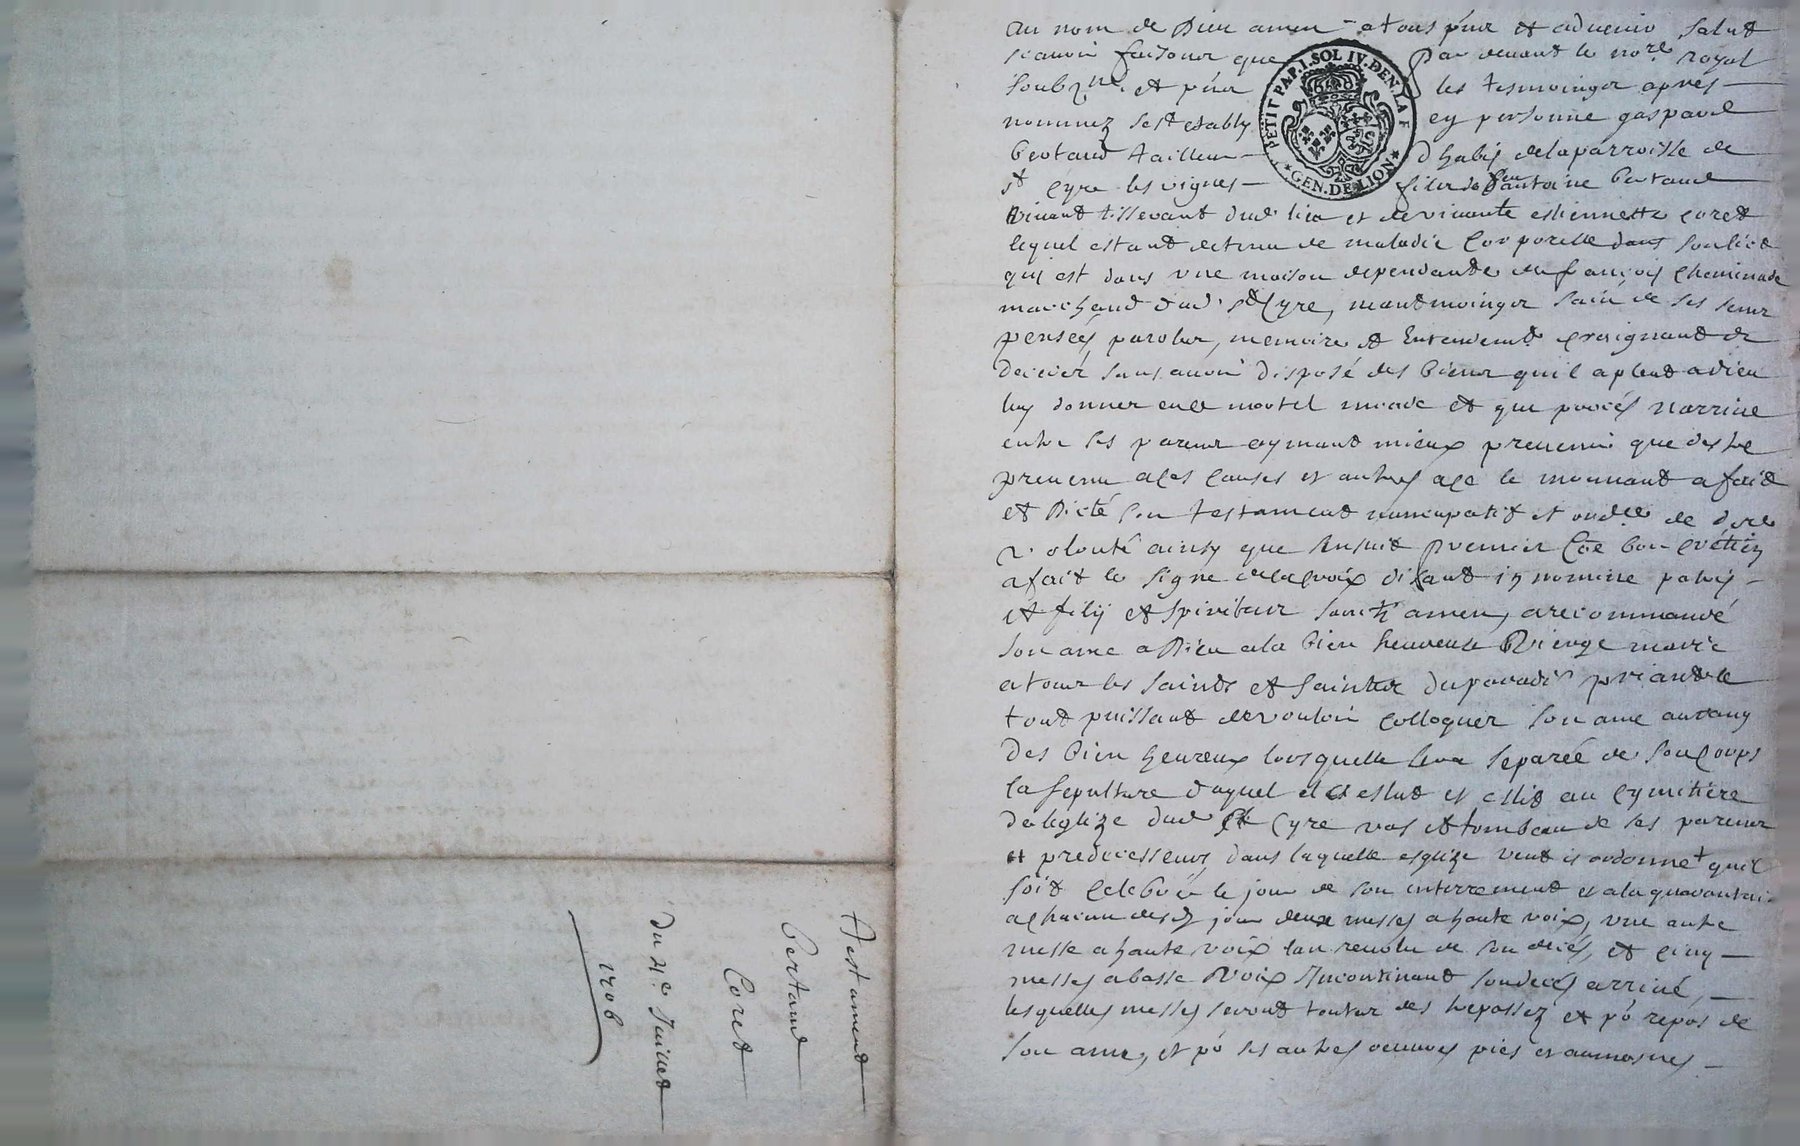 Testament
Bertaud
Coret
Du 4e Juillet
1706
PETIT PAP. 1. SOL IV. DEN. LA F
GEN. DE LION
au nom de Dieu amen - a tous pñs et aduenir salut
scauoir faisons que Par deuant le nore royal
soubzne et pñs les tesmoingz apres
nommez sest estably en personne gaspard
bertaud tailleur dhabis de la parroisse de
st Cyre les vignes filz de feu antoine bertaud
viuant tisserant dud lieu et de viuante estiennette coret
lequel estant detenu de maladie corporelle dans son lict
qui est dans vne maison dependante de françois cheminade
marchand dud st Cyre, neantmoingz sain de ses sens
pensées parolles, memoire et Entendemt craignant de
deceder sans auoir disposé des biens quil a pleut a dieu
luy donner en ce mortel monde et que procés narriue
entre ses parens aymant mieux preuenir que destre
preuenu a ces causes et autres a ce le mouuant a fait
et Dicté son testament noncupatif et ordce de dere
volonté ainsy que sensuit premier cõe bon cretien
a fait le signe de la croix disant in nomine patris
et filij et spiritus sancti amen, a recommandé
son ame a Dieu a la bien heureuse Vierge marie
a tous les saints et saintes du paradis priant le
tout puissant de vouloir colloquer son ame au rang
des bien heureux lors quelle sera separée de son corps
la sepulture duquel il a eslut et eslit au cymitiere
de leglize dud st Cyre vas et tombeau de ses parens
et predecesseurs dans laquelle esglize veut et ordonnet quil
soit celebré le jour de son enterrement et a la quarantaine
a chacun desd jour deux messes a haute voix, vne autre
messe a haute voix lan reuolu de son deces, et cinq
messes a basse voix Incontinant son deces arriué,
lesquelles messes seront toutes des trepassez et po repos de
son ame, et po ses autres oeuures pies et aumosnes